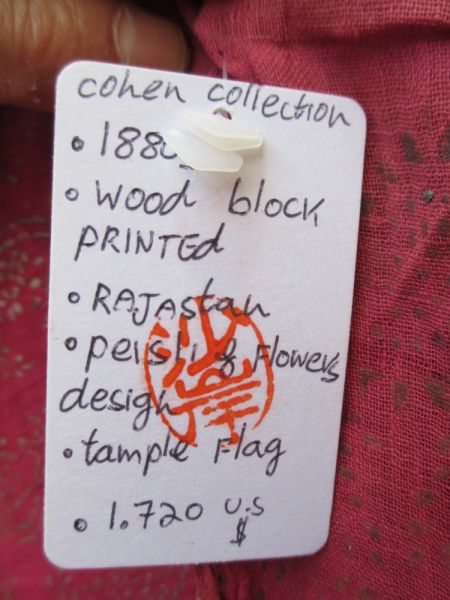 cohen collection
• 1880s
• wood block
PRINTEd
• RAJAstan
• peisli & Flowers
design
• tample Flag
• 1.720 U.S
$